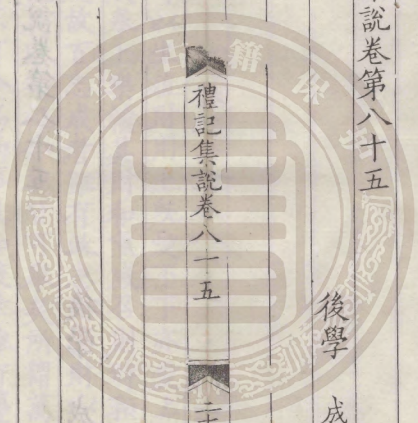 說卷第八十五
後學 成
禮記集說卷八一五
二十
古籍保